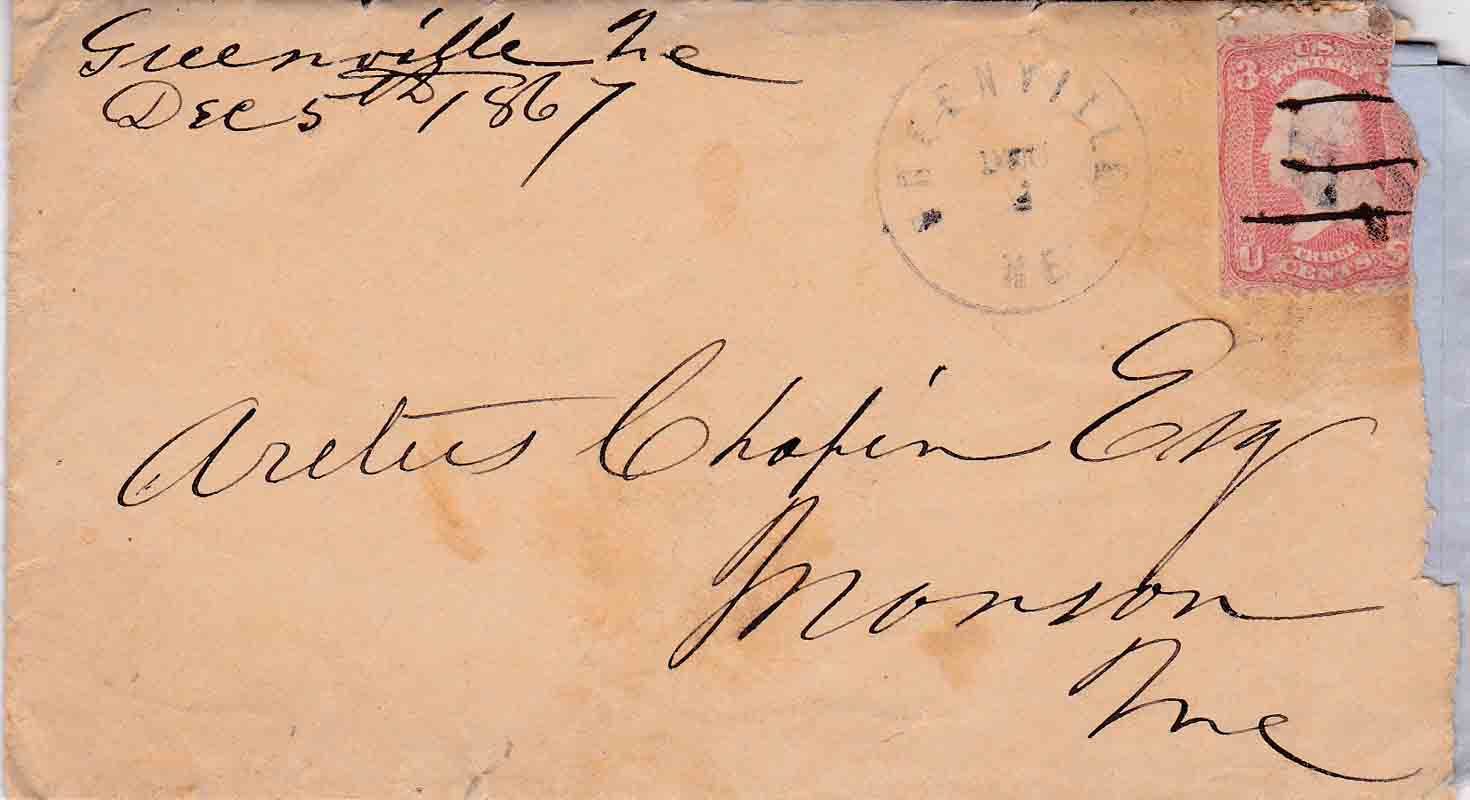 Greenville Me
Dec 5th 1867
GREENVILLE
ME
3
U.S.
POSTAGE
U
THREE
CENTS
Aretus Chapin Esq
Monson
Me